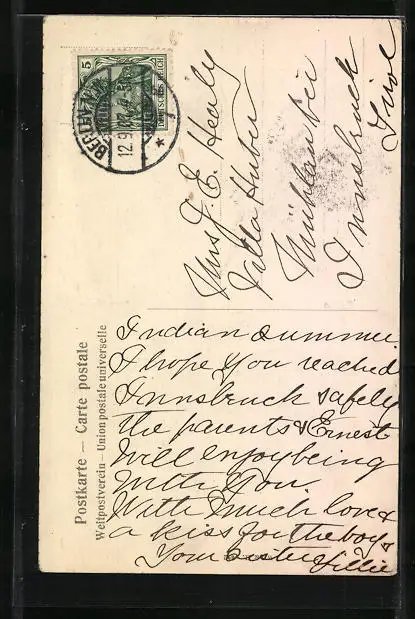 Postkarte — Carte postale
Weltpostverein — Union postale universelle
5
DEUTSCHES REICH
BERLIN
12.9.
Mrs J. E. Healy
Villa Huber
Mühlau bei
Innsbruck
Tirol
Indian summer
I hope you reached
Innsbruck safely
the parents & Ernest
will enjoy being
with you.
With much love &
a kiss for the boys
Your sister Lillie